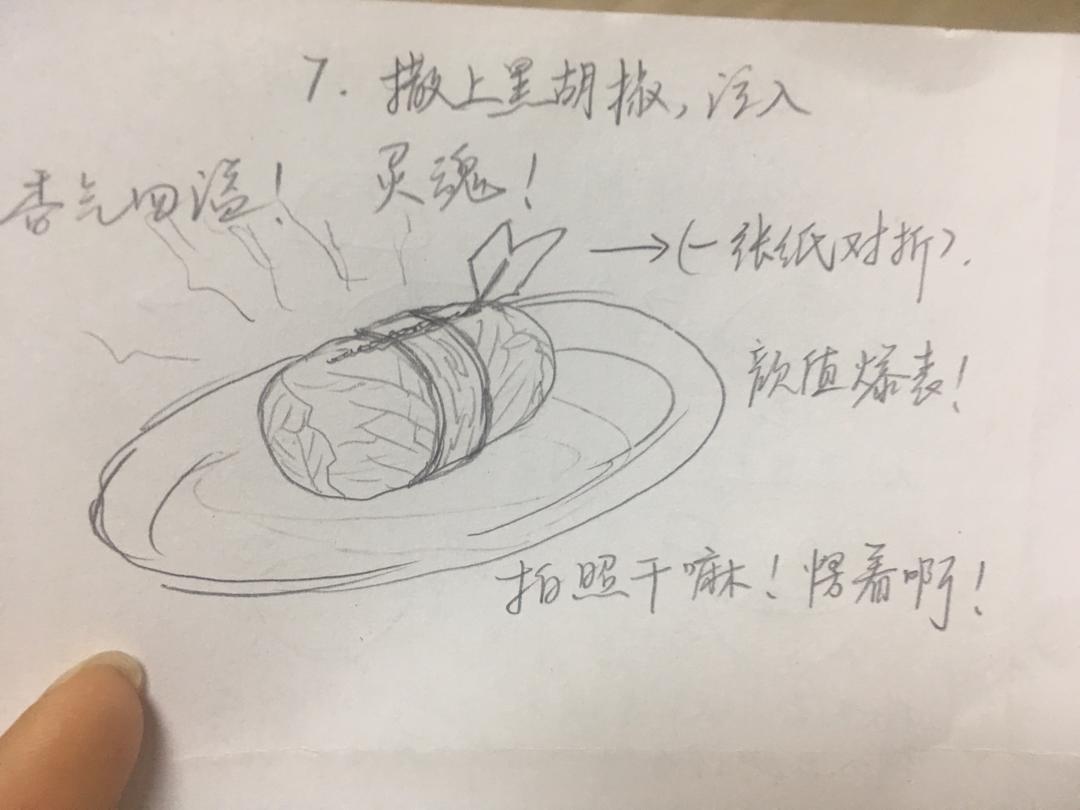 7. 撒上黑胡椒,注入
灵魂!
香气四溢!
→(一张纸对折).
颜值爆表!
拍照干嘛!愣着啊!